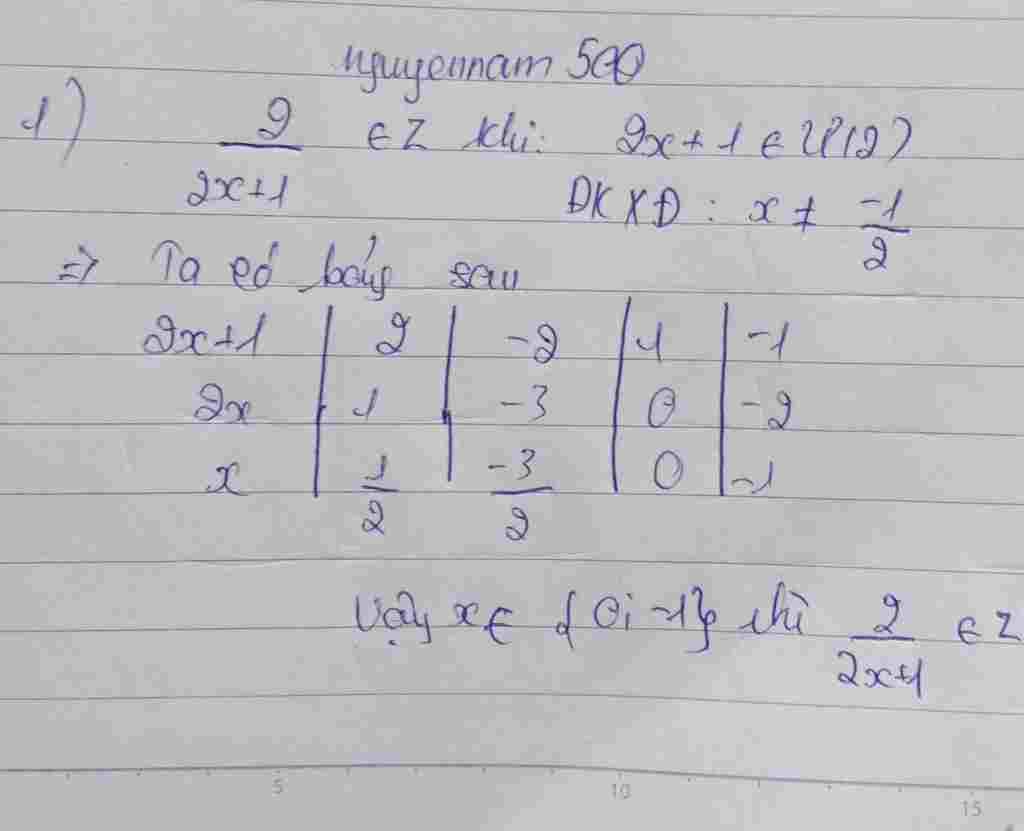 nguyennam 500
1) 2/(2x+1) ∈ Z khi: 2x+1 ∈ Ư(2)
ĐKXĐ: x ≠ -1/2
=> Ta có bảng sau
2x+1 | 2 | -2 | 1 | -1
2x | 1 | -3 | 0 | -2
x | 1/2 | -3/2 | 0 | -1
Vậy x ∈ {0; -1} thì 2/(2x+1) ∈ Z
5 10 15